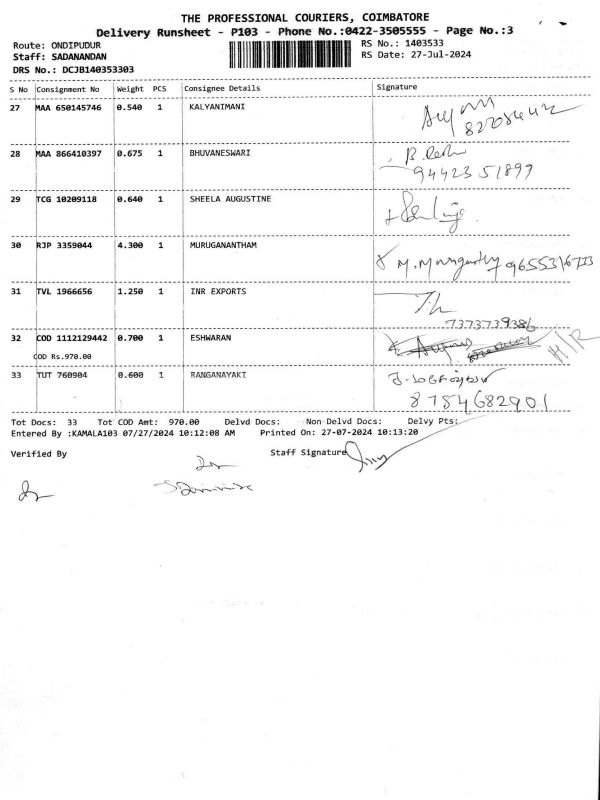 THE PROFESSIONAL COURIERS, COIMBATORE
Delivery Runsheet - P103 - Phone No.:0422-3505555 - Page No.:3
Route: ONDIPUDUR RS No.: 1403533
Staff: SADANANDAN RS Date: 27-Jul-2024
DRS No.: DCJB140353303
S No Consignment No Weight PCS Consignee Details Signature
27 MAA 650145746 0.540 1 KALYANIMANI
28 MAA 866410397 0.675 1 BHUVANESWARI
9442351899
29 TCG 10209118 0.640 1 SHEELA AUGUSTINE
30 RJP 3359044 4.300 1 MURUGANANTHAM
31 TVL 1966656 1.250 1 INR EXPORTS
7373739386
32 COD 1112129442 0.700 1 ESHWARAN H/R
COD Rs.970.00
33 TUT 760904 0.600 1 RANGANAYAKI
8754682901
Tot Docs: 33 Tot COD Amt: 970.00 Delvd Docs: Non-Delvd Docs: Delvy Pts:
Entered By :KAMALA103 07/27/2024 10:12:08 AM Printed On: 27-07-2024 10:13:20
Verified By Staff Signature